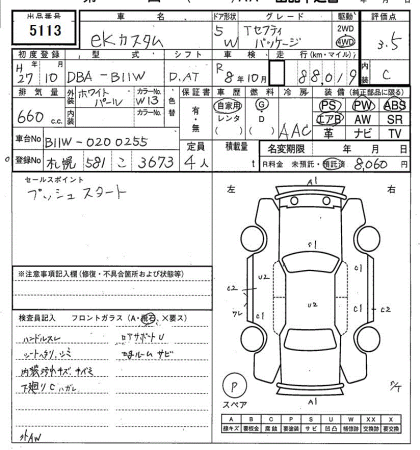 出品番号 車名 ドア形状 グレード 駆動 評価点
5113 eKカスタム 5W Tセフティパッケージ 2WD 4WD 3.5
初度登録 型式 シフト 車検 走行(km・マイル) 内装
H27 10 DBA-B11W D.AT R8年10月 88,019 C
排気量 外装色 カラーNo. 色替 保証書 車歴 燃料 冷房 装備(純正部品に限る)
660c.c. ホワイトパール W13 有・無 自家用 レンタ ( ) G D ( ) AAC PS PW ABS
エアB AW SR
革 ナビ TV
車台No B11W-0200255 定員 積載量 名変期限 年 月 日
登録No 札幌 581 こ 3673 4人 t R料金 未預託・預託済 8,060円
セールスポイント
プッシュスタート
左 右
A1
C1
A1
U2
C1
C2
U2
C2
ワレ
C1
C1
A1
※注意事項記入欄(修復・不具合箇所および状態等)
検査員記入 フロントガラス(A・飛石・×要ス)
ハンドルスレ ロアサポートU
シートスリ、シミ エンジンルームサビ
内装汚れキズ
下廻りCハガレ
外AW
P
スペア
A B C P S U W X XX X
線キズ 要板金 腐蝕 要塗装 サビ 凹凸 補修跡 交換跡 要交換